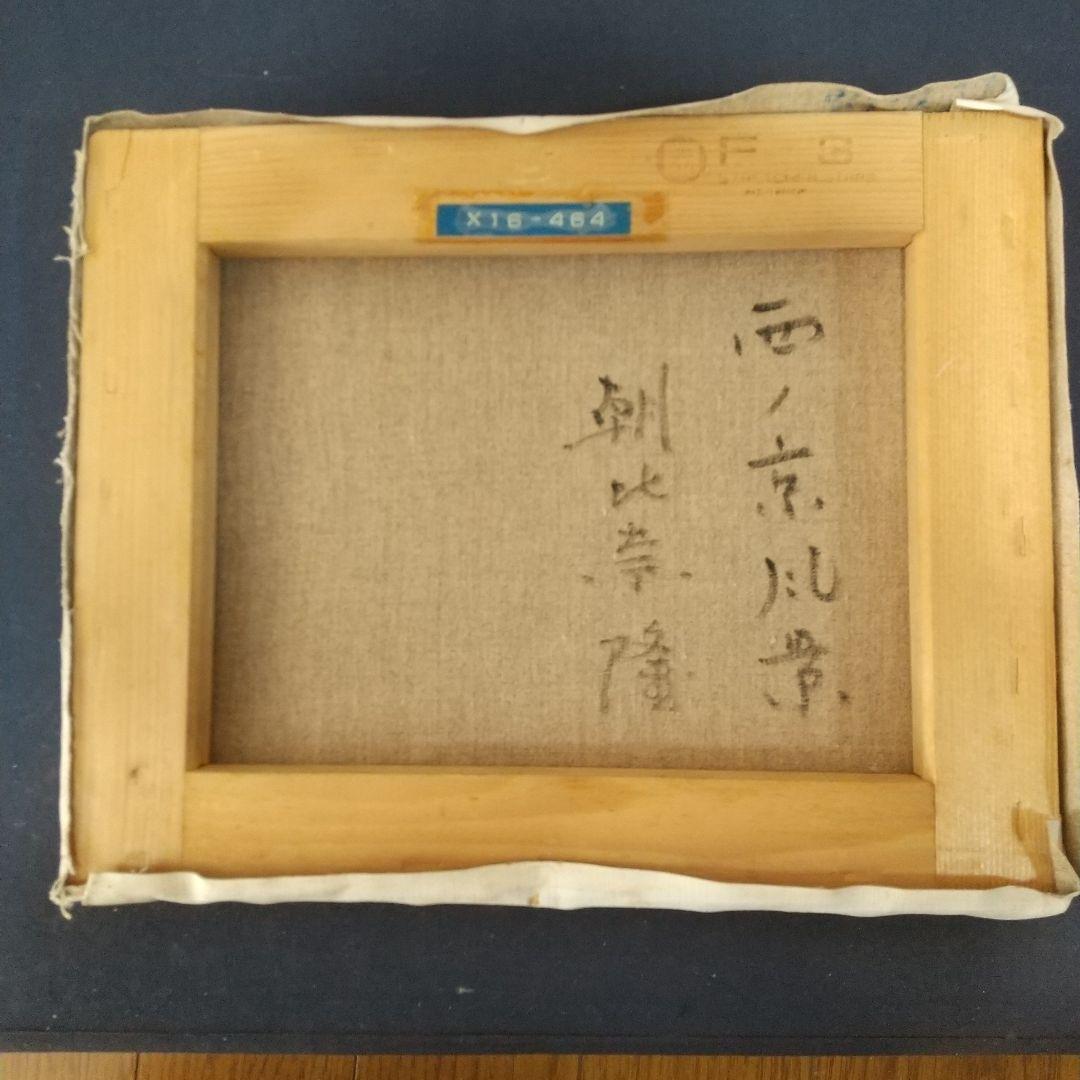 F 3
STRETCHER BARS
X16-464
西ノ京風景
朝比奈隆